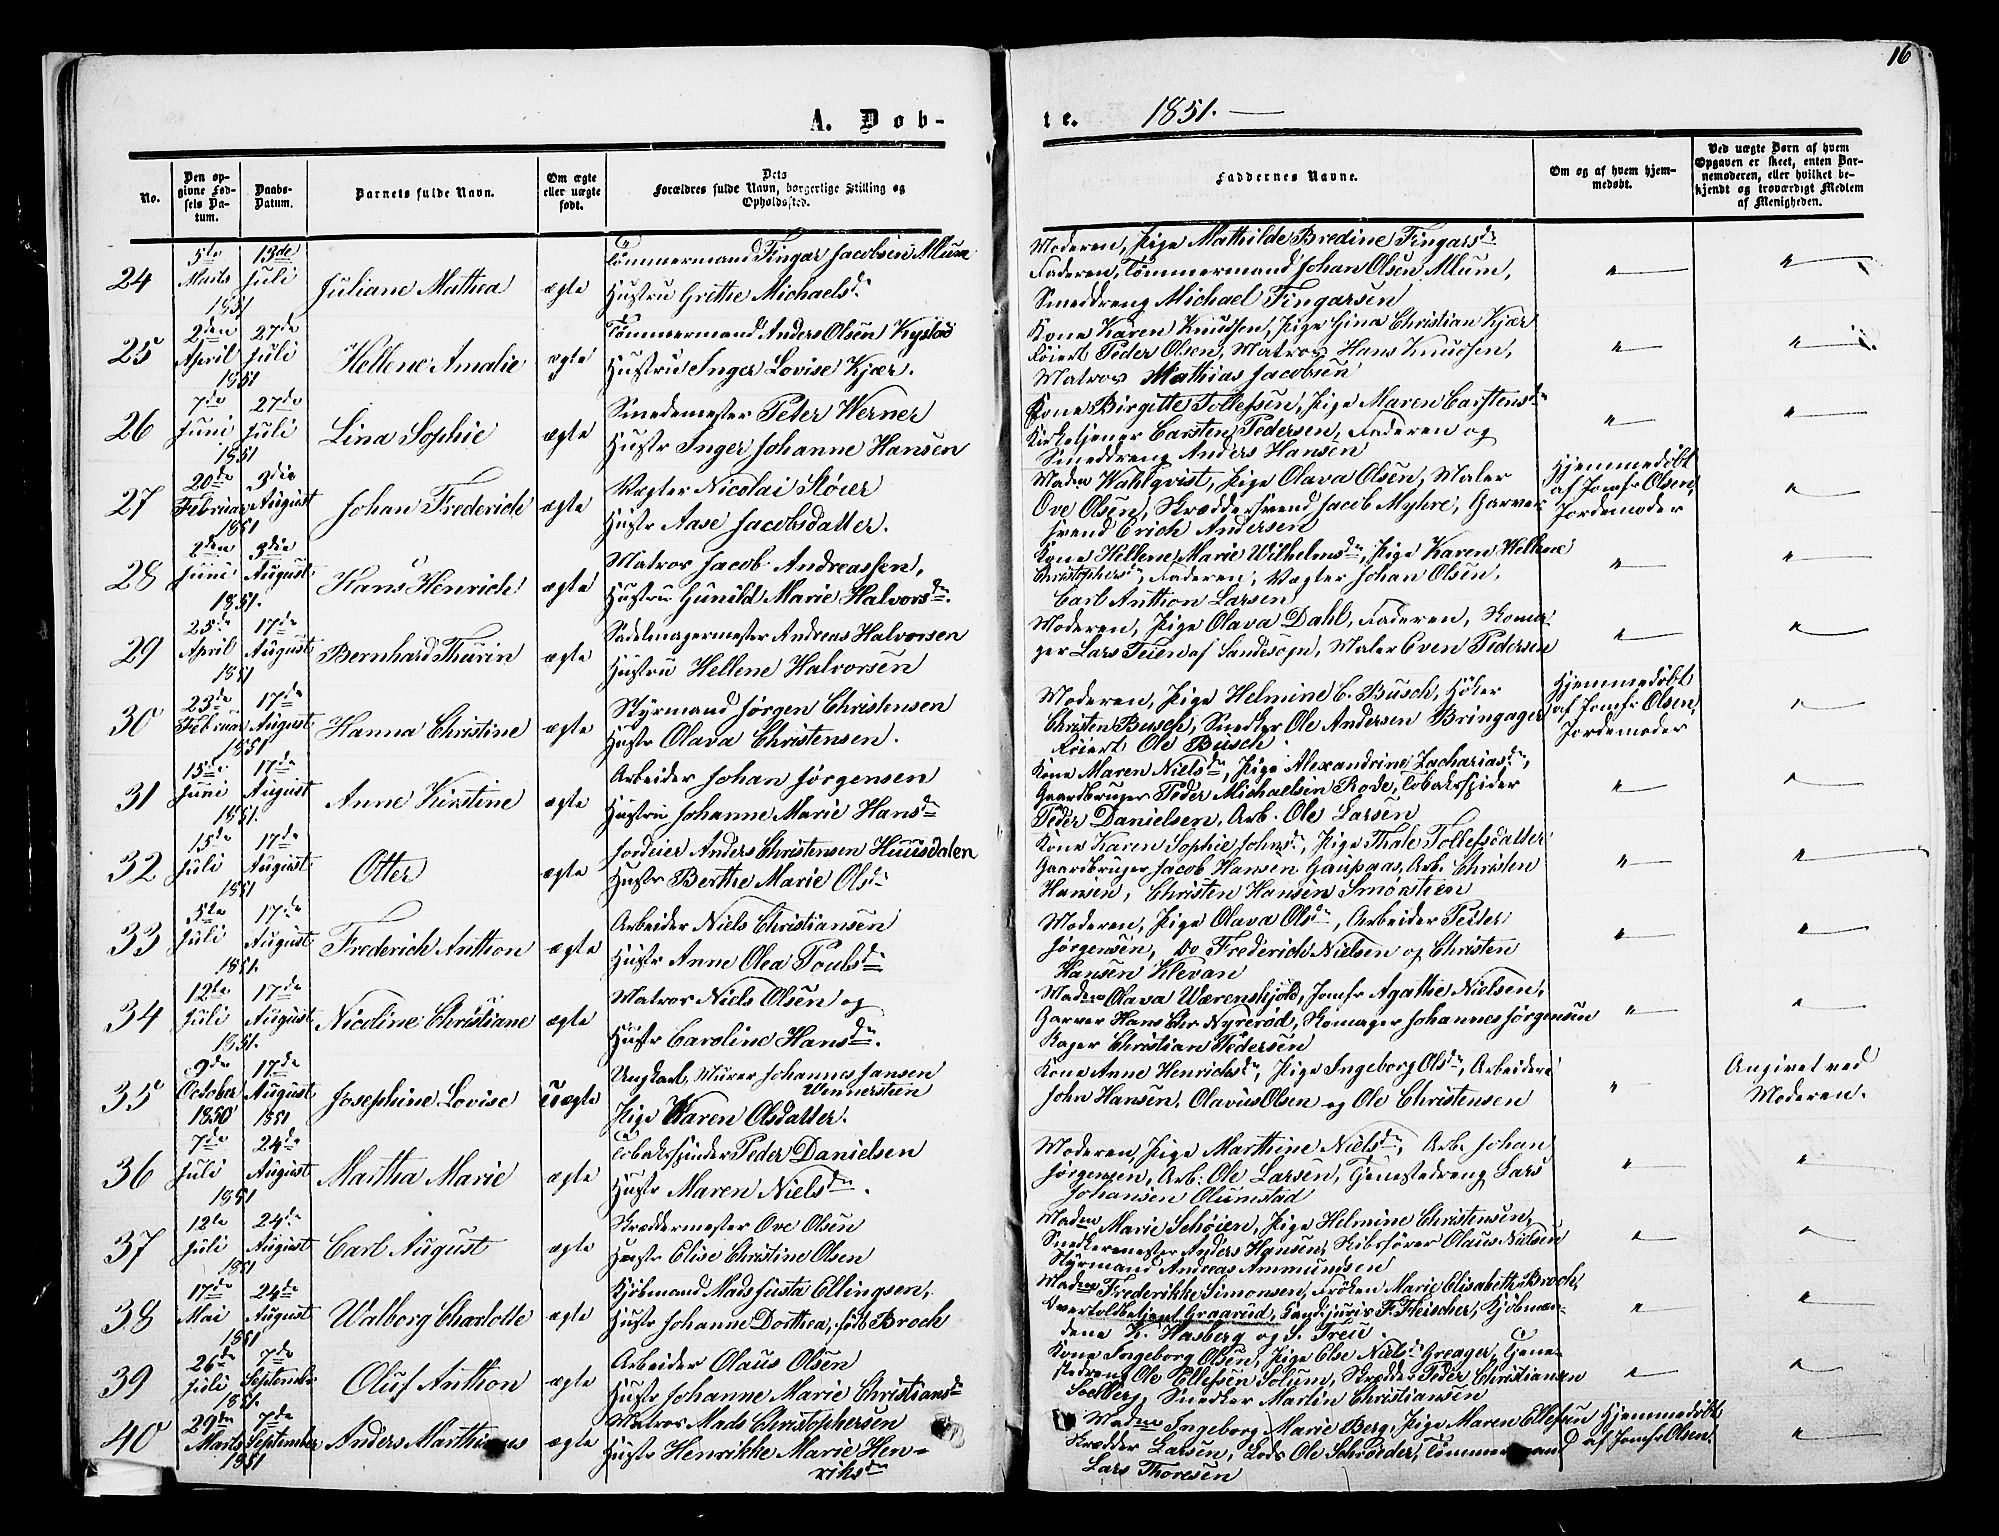 16
A. Døb-
te. 1851.
No.
Den op-
givne Fød-
sels Da-
tum.
Daabs-
Datum.
Barnets fulde Navn.
Om ægte
eller uægte
født.
Dets
Forældres fulde Navn, borgerlige Stilling og
Opholdssted.
Faddernes Navne.
Om og af hvem hjem-
medøbt.
Ved uægte Børn af hvem
Opgaven er skeet, enten Bar-
nemoderen, eller hvilket be-
kjendt og troværdigt Medlem
af Menigheden.
24
5te Marts 1851
13de Juli
Juliane Mathea
ægte
Tømmermand Fingar Jacobsen Allum
Hustru Grethe Michaelsdr
Moderen, Pige Mathilde Bredine Fingarsdr
Faderen, Tømmermand Johan Olsen Allum,
Smeddreng Michael Fingarsen
25
2den April 1851
27de Juli
Hellene Amalie
ægte
Tømmermand Anders Olsen Kystad
Hustru Inger Lovise Kjær.
Kone Karen Knudsen, Pige Gina Christian Kjær
Føiert Peder Olsen, Matros Hans Knudsen,
Matros Mathias Jacobsen
26
7de Juni 1851
27de Juli
Lina Sophie
ægte
Smedemester Peter Werner
Hustr Inger Johanne Hansen
Kone Birgitte Tollefsen, Pige Maren Carstensdr
Kirketjener Carsten Pedersen, Faderen og
Smeddreng Anders Hansen
27
20de Februar 1851
3die August
Johan Frederich
ægte
Vægter Nicolai Støier
Hustr Aase Jacobsdatter.
Madm Wahlqvist, Pige Olava Olsen, Maler
Ove Olsen, Skræddersvend Jacob Myhre, Garver
svend Erich Andersen
Hjemmedøbt
af Jomfr Olsen,
Jordemoder
28
2den Juni 1851.
3die August
Hans Henrich
ægte
Matros Jacob Andreassen,
Hustru Gunild Marie Halvorsdr.
Kone Hellene Marie Wilhelmsdr, Pige Karen Hellene
Christophersdr, Faderen, Vægter Johan Olsen,
Carl Anthon Larsen
29
25de April 1851
17de August
Bernhard Thurin
ægte
Sadelmagermester Andreas Halvorsen
Hustru Hellene Halvorsen
Moderen, Pige Olava Dahl, Faderen, Skoma-
ger Lars Teien af Sandesogn, Maler Even Pedersen
30
23de Februar 1851
17de August
Hanna Christine
ægte
Styrmand Jørgen Christensen
Hustr Olava Christensen.
Moderen, Pige Helmine C. Busch, Høker
Christen Busch, Snedker Ole Andersen Bringager
Føiert Ole Busch
Hjemmedøbt
af Jomfr Olsen,
Jordemoder
31
15de Juni 1851.
17de August
Anne Kirstine
ægte
Arbeider Johan Jørgensen
Hustru Johanne Marie Hansdr
Kone Maren Nielsdr, Pige Alexandrine Zachariasdr,
Gaardbruger Peder Michaelsen Rove, Tobakspinder
Peder Danielsen, Arb. Ole Larsen
32
15de Juli 1851
17de August
Otter
ægte
Jordeier Anders Christensen Huusdalen
Hustr Berthe Marie Olsdr
Kone Karen Sophie Johnsdr, Pige Thale Tollefsdatter
Gaardbruger Jacob Hansen Gaupaas, Arb. Christen
Hansen, Christen Hansen Smørsteen
33
5te Juli 1851.
17de August
Frederich Anthon
ægte
Arbeider Niels Christiansen
Hustr Anne Olea Poulsdr
Moderen, Pige Olava Olsdr, Arbeider Peter
Jørgensen, do Frederich Nielsen og Christen
Hansen Klevan
34
12te Juli 1851.
17de August
Nicoline Christiane
ægte
Matros Niels Olsen og
Hustr Caroline Hansdr.
Madm Olava Wærenskjold, Jomfr Agathe Nielsen,
Garver Hans Chr Nyrerød, Skomager Johannes Jørgensen
Bager Christian Pedersen
35
9de October 1850
17de August 1851
Josephine Lovise
uægte
Ungkarl, Murer Johannes Jansen
Wennersteen
Pige Karen Olsdatter.
Kone Anne Henrichsdr, Pige Ingeborg Olsdr, Arbeidere
John Hansen, Olavius Olsen og Ole Christensen
Angivet ved
Moderen.
36
7de Juli 1851
24de August
Martha Marie
ægte
Tobakspinder Peder Danielsen
Hustr Maren Nielsdr.
Moderen, Pige Marthine Nielsdr, Arb. Johan
Jørgensen, Arb: Ole Larsen, Tjenestedreng Lars
Johansen Olumstad
37
12te Juli 1851
24de August
Carl August
ægte
Skræddermester Ove Olsen
Hustr Elise Christine Olsen
Madm Marie Schøien, Pige Helmine Christensen,
Snedkermester Anders Hansen, Skibsfører Olaus Nielsen
Styrmand Andreas Ammundsen
38
17de Mai 1851
24de August
Walborg Charlotte
ægte
Kjøbmand Mads Justa Ellingsen,
Hustr Johanne Dorthea, født Broch
Madm Frederikke Simonsen, Frøken Marie Elisabeth Broch,
Overtoldbetjent Graarud, Cand: juris F. Fleischer, Kjøbmæn-
dene K. Hasberg og S. Treu.
39
26de Juli 1851.
7de September
Oluf Anthon
ægte
Arbeider Olaus Olsen
Hustr Johanne Marie Christiansdr
Kone Ingeborg Olsen, Pige Else Nielsdr Greager, Tjene-
stedreng Ole Ellefsen Solum, Skrædder Peder Christiansen
Solberg, Snedker Martin Christiansen
40
29de Marts 1851
7de September
Anders Marthinus
ægte
Matros Mads Christophersen
Hustr Henrikke Marie Hen-
riksdr
Madm Ingeborg Marie Berg, Pige Maren Ellefsen
Skrædder Larsen, Lods Ole Schrøder, Tømmermand
Lars Thoresen
Hjemmedøbt
af Jomfr Olsen.